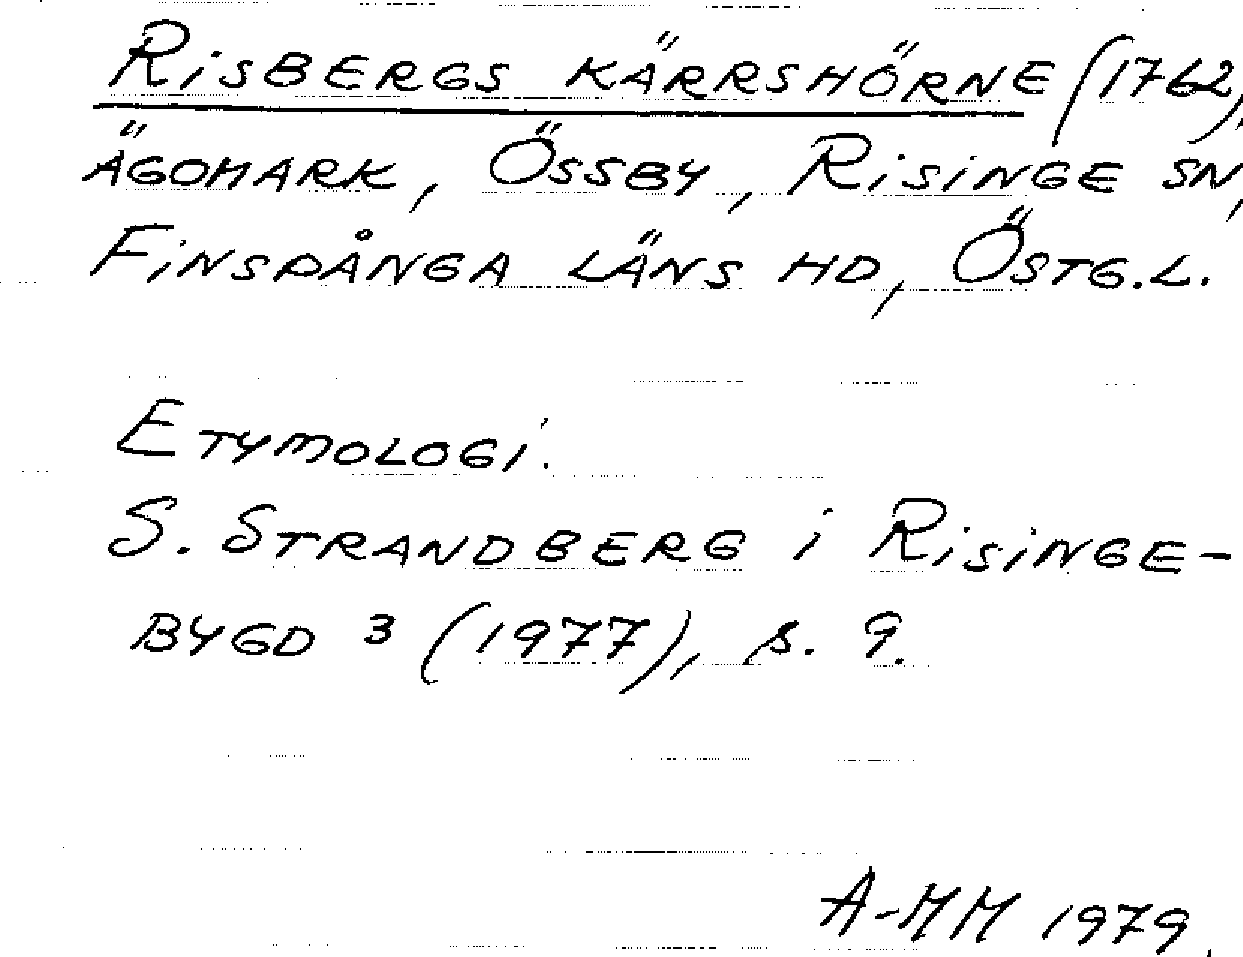 Risbergs kärrshörne (1762),
ägomark, Össby, Risinge sn,
Finspånga läns hd, Östg.l.
Etymologi.
S. Strandberg i Risinge-
bygd 3 (1977), s. 9.
A-MM 1979.